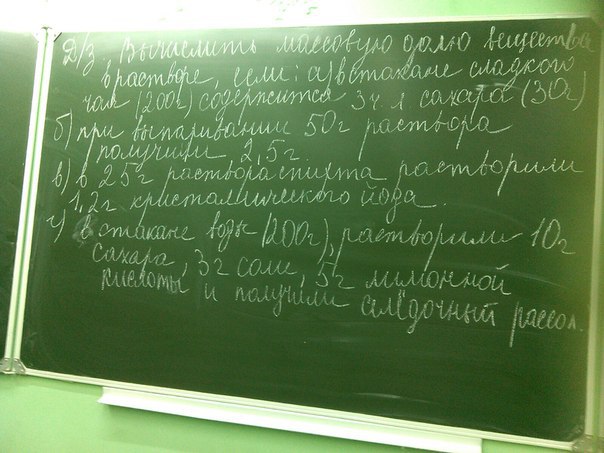 Д/з Вычислить массовую долю вещества
в растворе, если: а) в стакане сладкого
чая (200г) содержится 3 ч.л сахара (30г)
б) при выпаривании 50г раствора
получили 2,5г.
в) в 25г раствора спирта растворили
1,2г кристаллического йода.
г) в стакане воды (200г), растворили 10г
сахара, 3г соли, 5г лимонной
кислоты и получили селёдочный рассол.